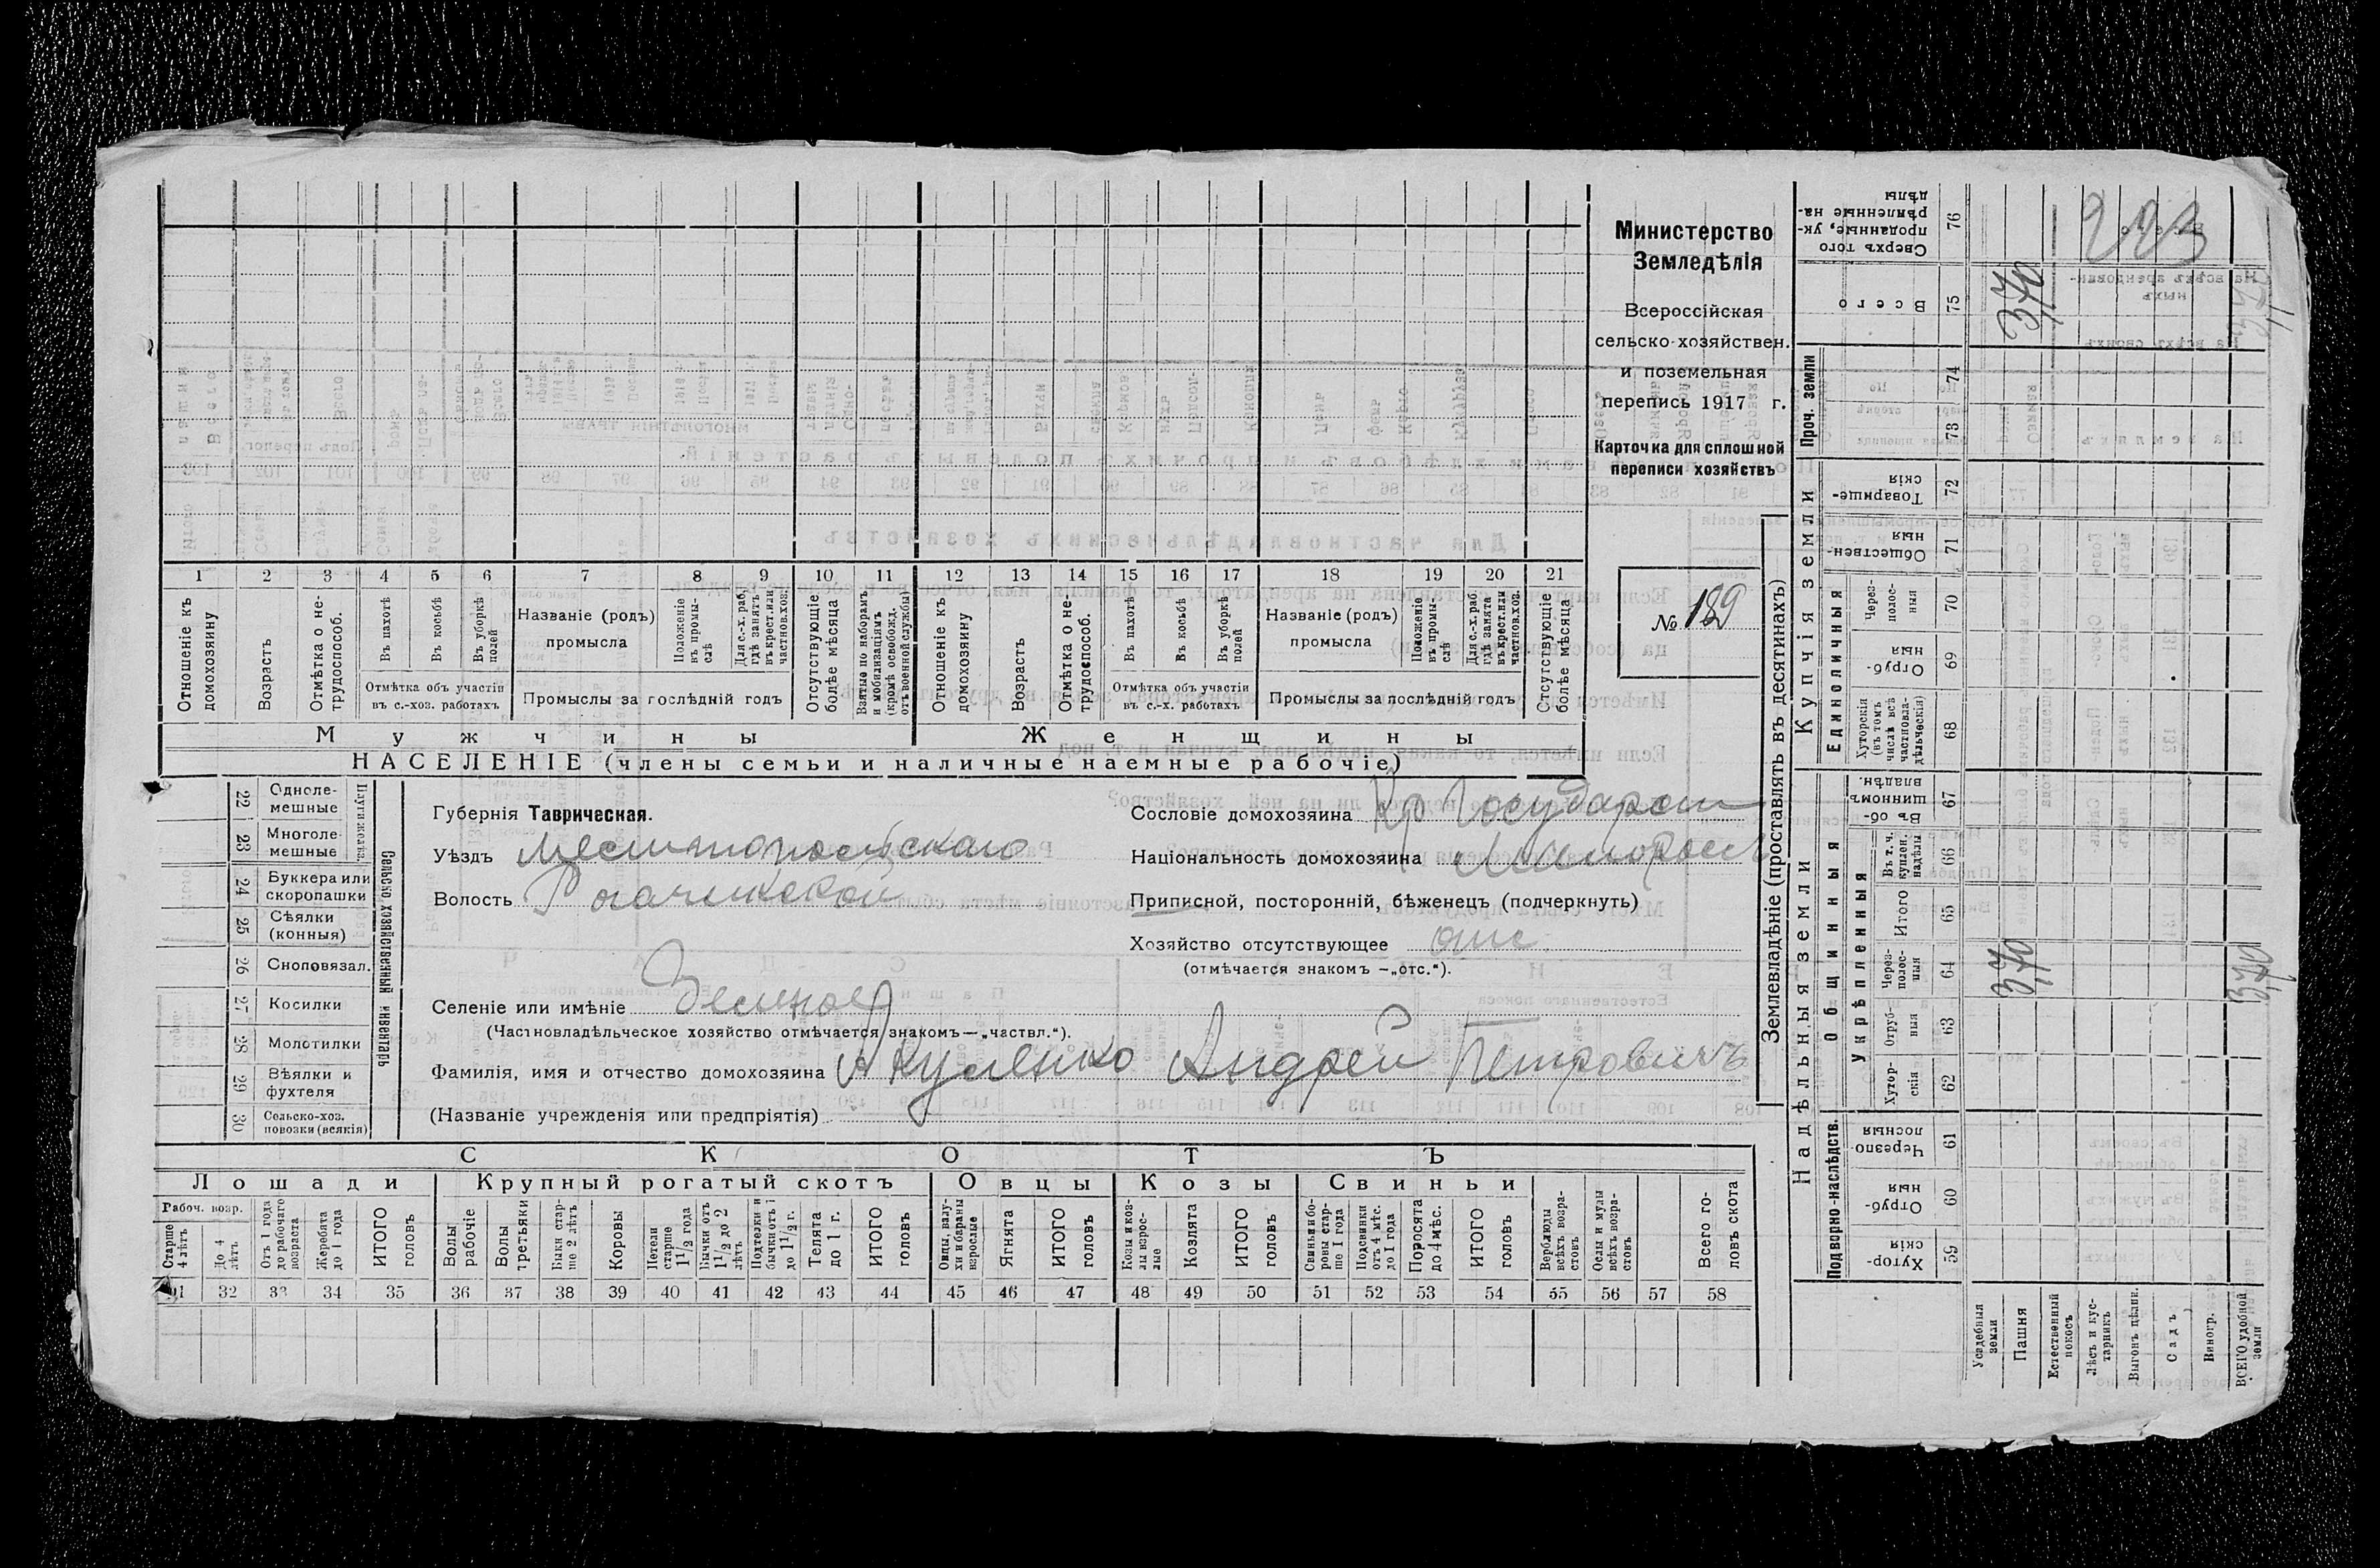 Министерство
Земледѣлія
Всероссійская
сельско-хозяйствен.
и поземельная
перепись 1917 г.
Карточка для сплошной
переписи хозяйствъ
№ 189
1 2 3 4 5 6 7 8 9 10 11 12 13 14 15 16 17 18 19 20 21
Отношеніе къ домохозяину
Возрастъ
Отмѣтка о не-трудоспособ.
Въ пахотѣ
Въ косьбѣ
Въ уборкѣ полей
Отмѣтка объ участіи
въ с.-хоз. работахъ
Названіе (родъ)
промысла
Положеніе въ промы-слѣ
Для с.-х. раб. гдѣ занятъ въ крест. или частнов. хоз.
Промыслы за послѣдній годъ
Отсутствующіе болѣе мѣсяца
Взятые по наборамъ и мобилизаціямъ (кромѣ освобожд. отъ военной службы)
Отношеніе къ домохозяину
Возрастъ
Отмѣтка о не-трудоспособ.
Въ пахотѣ
Въ косьбѣ
Въ уборкѣ полей
Отмѣтка объ участіи
въ с.-х. работахъ
Названіе (родъ)
промысла
Положеніе въ промы-слѣ
Для с.-х. раб. гдѣ занята въ крест. или частнов. хоз.
Промыслы за послѣдній годъ
Отсутствующіе болѣе мѣсяца
Мужчины Женщины
НАСЕЛЕНІЕ (члены семьи и наличные наемные рабочіе)
22 Одноле-мешные
23 Многоле-мешные
24 Буккера или скоропашки
25 Сѣялки (конныя)
26 Сноповязал.
27 Косилки
28 Молотилки
29 Вѣялки и фухтеля
30 Сельско-хоз. повозки (всякія)
Сельско-хозяйственный инвентарь
Губернія Таврическая.
Уѣздъ Мелитопольскаго
Волость Рогачикской
Селеніе или имѣніе Зеленое
(Частновладѣльческое хозяйство отмѣчается знакомъ—„частвл.“).
Фамилія, имя и отчество домохозяина Акуленко Андрей Петровичъ
(Названіе учрежденія или предпріятія)
Сословіе домохозяина Кр Государст
Національность домохозяина Малоросс
Приписной, посторонній, бѣженецъ (подчеркнуть)
Хозяйство отсутствующее отс
(отмѣчается знакомъ —„отс.“).
СКОТЪ
Лошади Крупный рогатый скотъ Овцы Козы Свиньи
Рабоч. возр.
Старше 4 лѣтъ
До 4 лѣтъ
Отъ 1 года до рабочаго возраста
Жеребята до 1 года
ИТОГО головъ
Волы рабочіе
Волы третьяки
Быки стар-ше 2 лѣтъ
Коровы
Нетели старше 1 1/2 года
Бычки отъ 1 1/2 до 2 лѣтъ
Подтелки и бычки отъ 1 до 1 1/2 г.
Телята до 1 г.
ИТОГО головъ
Овцы, валу-хи и бараны взрослые
Ягнята
ИТОГО головъ
Козы и коз-лы взрос-лые
Козлята
ИТОГО головъ
Свиньи и бо-ровы стар-ше 1 года
Подсвинки отъ 4 мѣс. до 1 года
Поросята до 4 мѣс.
ИТОГО головъ
Верблюды всѣхъ возра-стовъ
Ослы и мулы всѣхъ возра-стовъ
Всего го-ловъ скота
32 33 34 35 36 37 38 39 40 41 42 43 44 45 46 47 48 49 50 51 52 53 54 55 56 57 58
Землевладѣніе (проставлять въ десятинахъ)
Надѣльныя земли
Купчія земли
Проч. земли
Подворно-наслѣдств.
Общинныя
Укрѣпленныя
Единоличныя
Хутор-скія 59
Отруб-ныя 60
Черезпо-лосныя 61
Хутор-скія 62
Отруб-ныя 63
Через-полос-ныя 64
Итого 65
Въ т. ч. куплен. надѣлы 66
Въ об-щинномъ владѣн. 67
Хуторскія (въ томъ числѣ всѣ частновла-дѣльческія) 68
Отруб-ныя 69
Через-полос-ныя 70
Обществен-ныя 71
Товарище-скія 72
73
74
Всего 75
Сверхъ того проданные, ук-рѣпленные на-дѣлы 76
Усадебныя земли
Пашня
Естественный покосъ
Лѣсъ и кус-тарникъ
Выгонъ цѣлин.
Садъ
Виногр.
ВСЕГО удобной земли
223